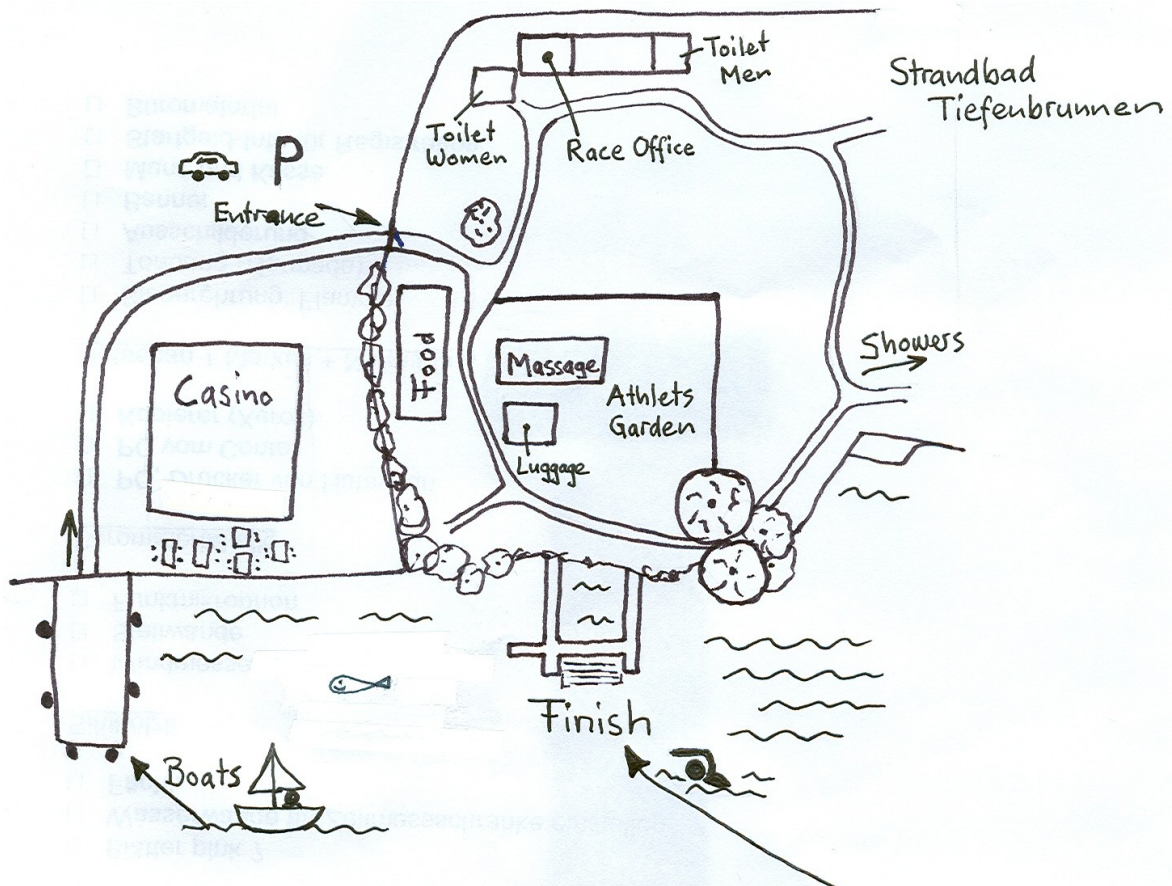 Toilet
Men
Strandbad
Tiefenbrunnen
Toilet
Women
Race Office
P
Entrance
Showers
Food
Massage
Casino
Athlets
Garden
Luggage
Finish
Boats